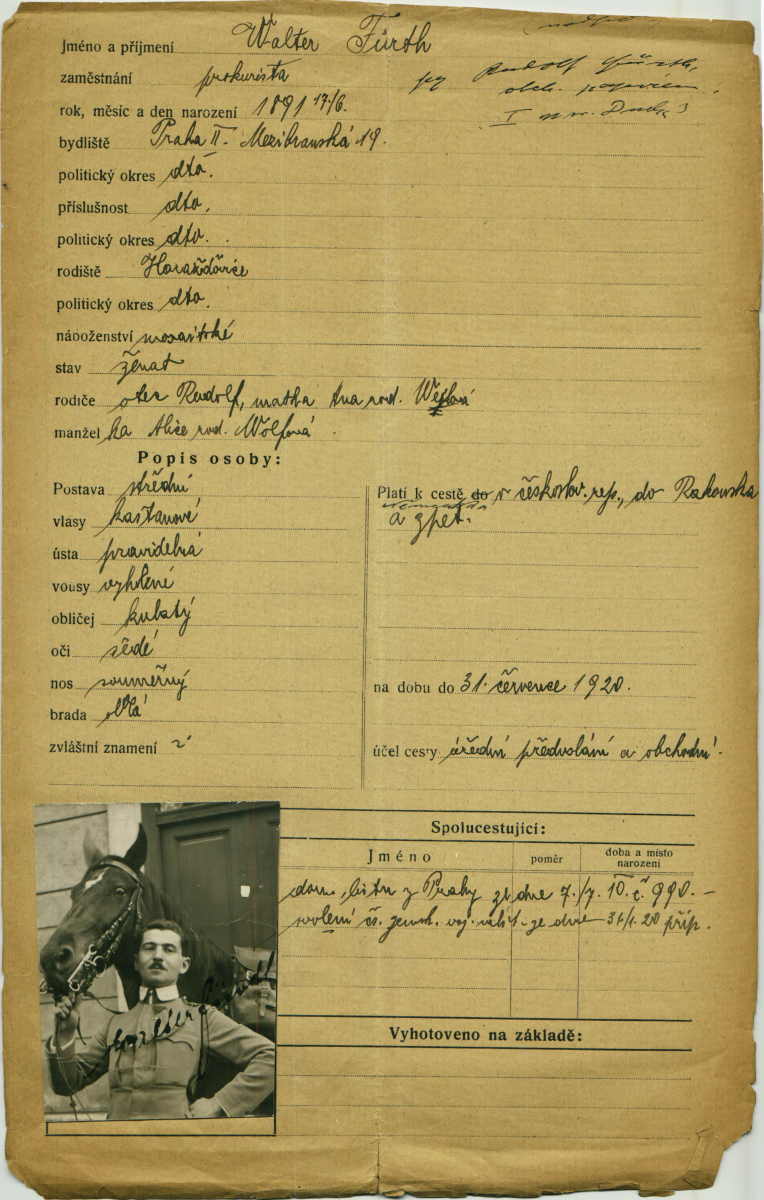 Jméno a příjmení Walter Fürth
zaměstnání prokurista
Rudolf Fürth,
rok, měsíc a den narození 1891 17/6.
bydliště Praha II. Mezibranská 19.
politický okres dto.
příslušnost dto.
politický okres dto.
rodiště Horažďovice
politický okres dto.
náboženství mosaitské
stav ženat
rodiče otec Rudolf, matka Ana rod.
manžel ka Alice rod. Wolfová
Popis osoby:
Postava střední
vlasy kaštanové
ústa pravidelná
vousy vyholené
obličej kulatý
oči šedé
nos souměrný
brada oblá
zvláštní znamení
Platí k cestě do v českoslov. rep., do Rakouska
a zpět.
na dobu do 31. července 1920.
účel cesty úřední předvolání a obchodní.
Spolucestující:
Jméno poměr doba a místo
narození
dom. listu z Prahy ze dne 7./7. 10. č. 990.
svolení čs. zemsk. voj. velit. ze dne 31/1. 20 příp.
Vyhotoveno na základě: